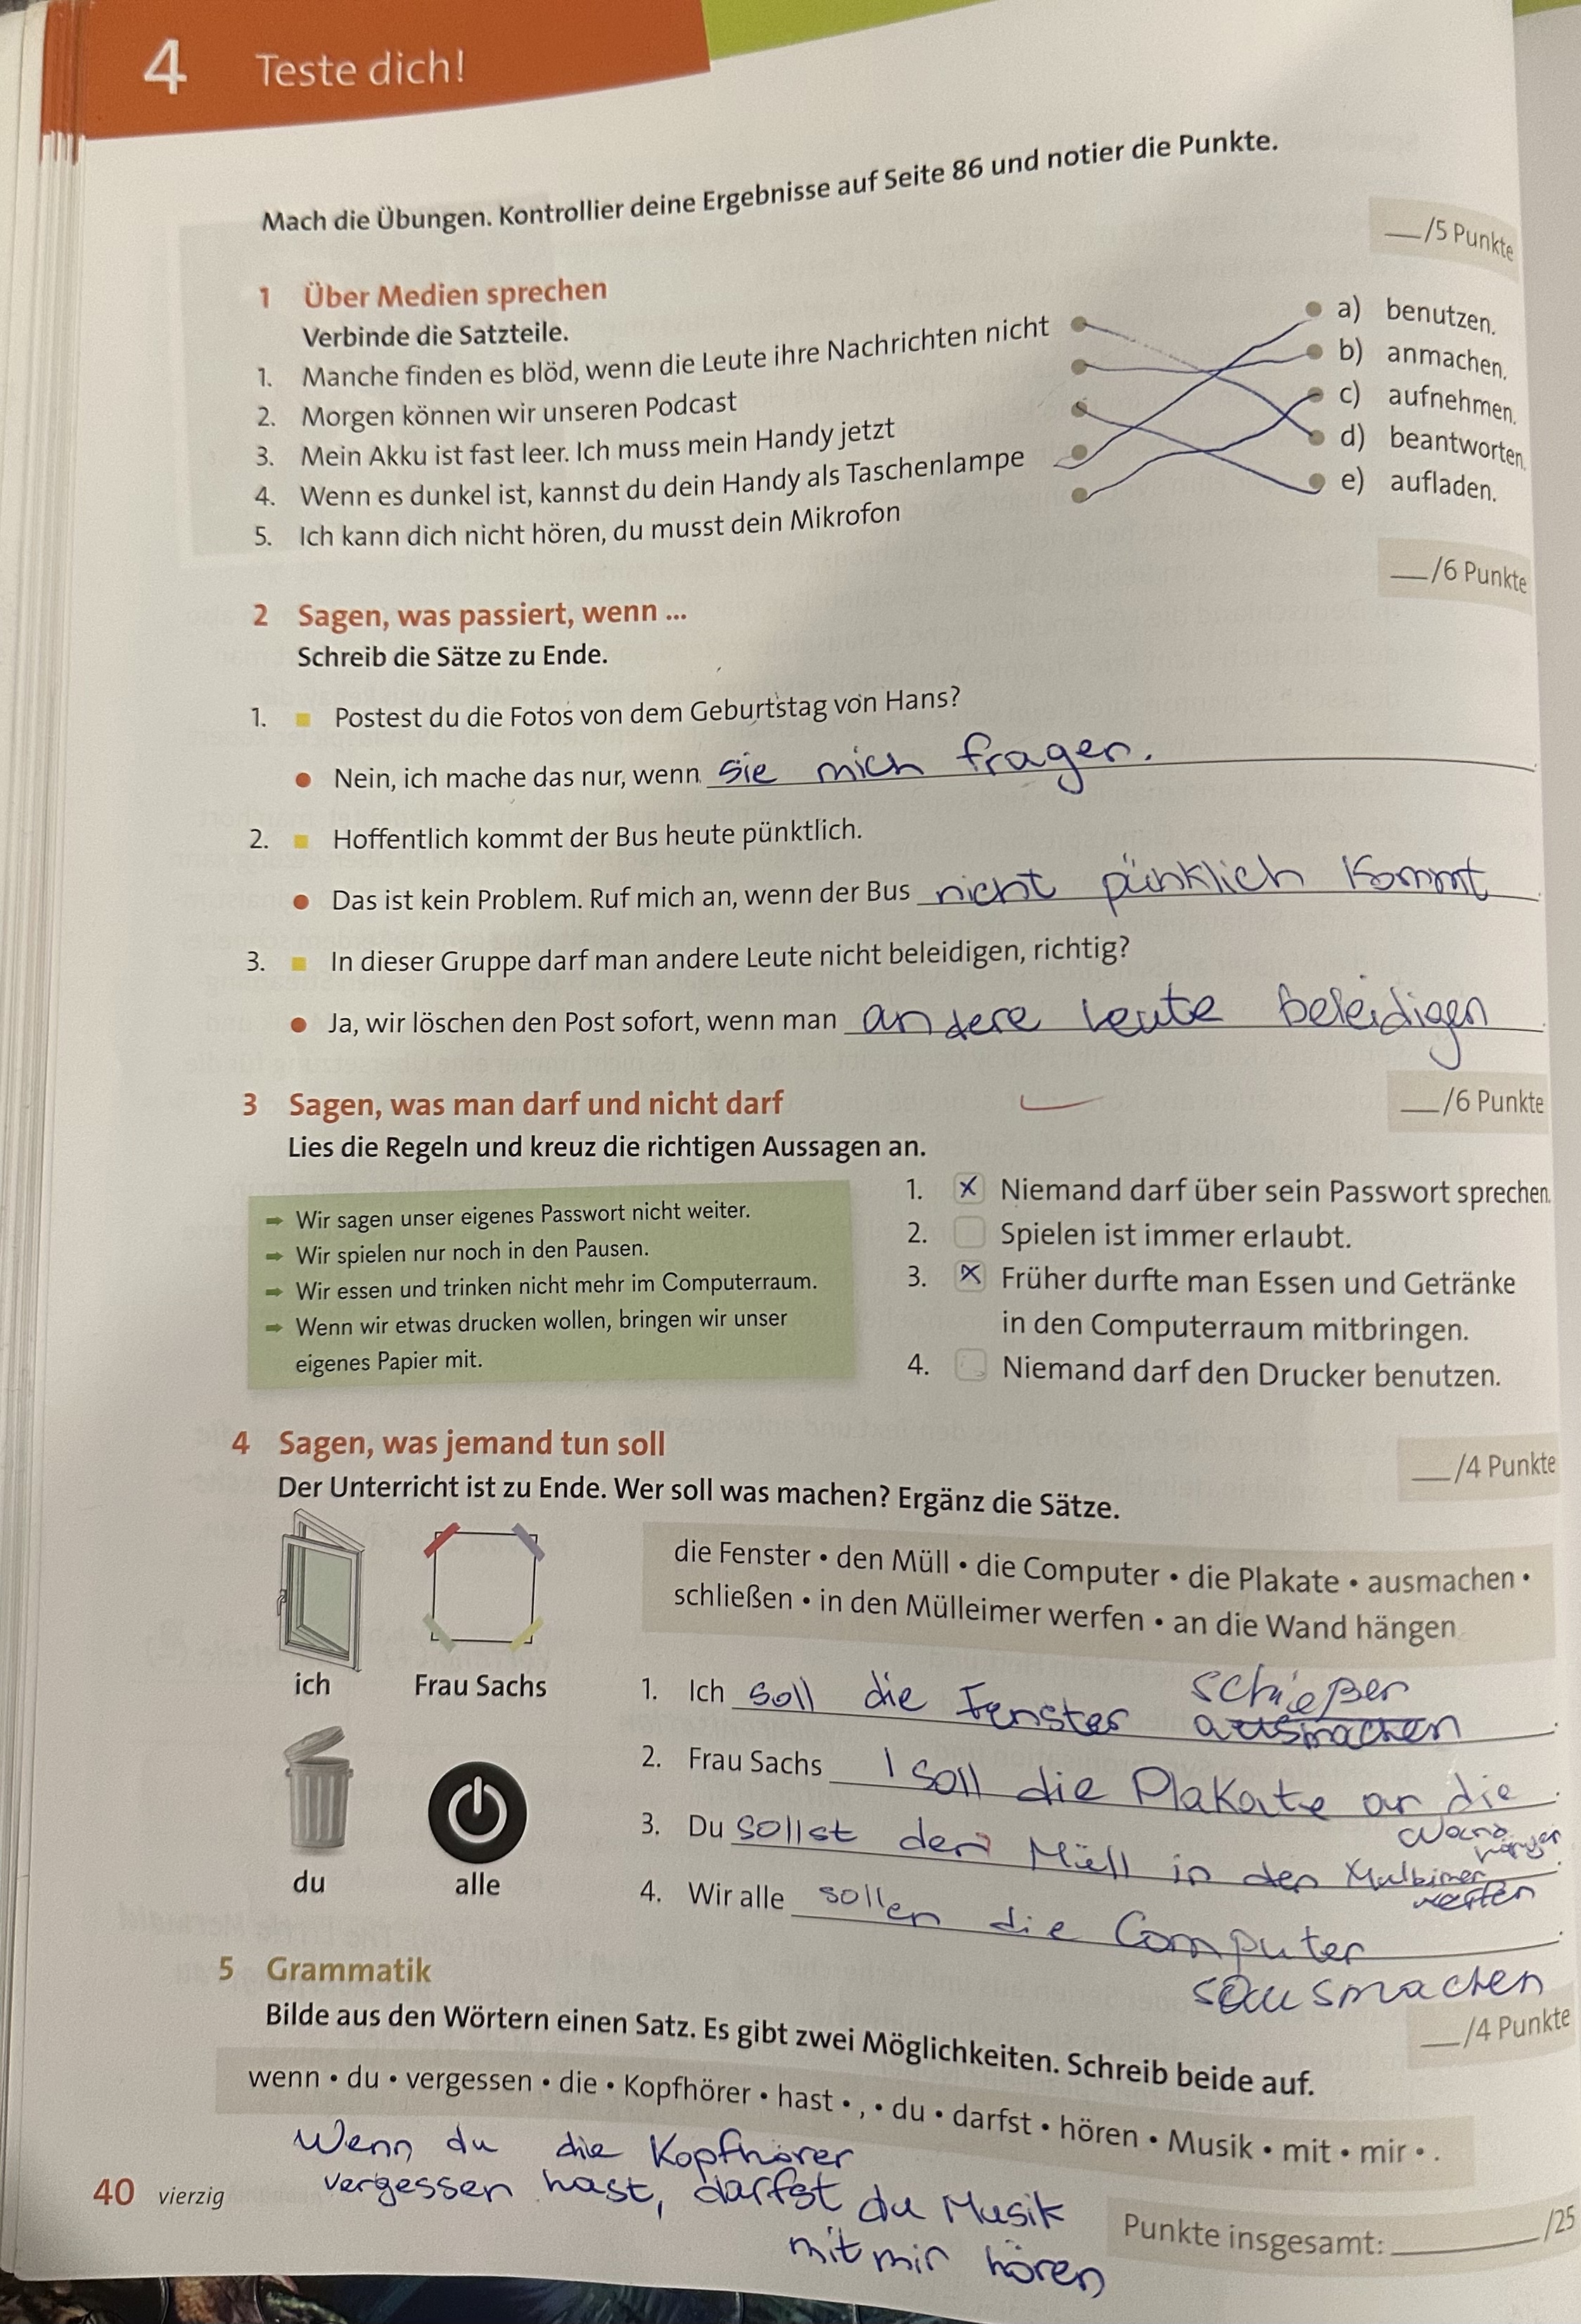 4 Teste dich!
Mach die Übungen. Kontrollier deine Ergebnisse auf Seite 86 und notier die Punkte.
___/5 Punkte
1 Über Medien sprechen
Verbinde die Satzteile.
1. Manche finden es blöd, wenn die Leute ihre Nachrichten nicht
2. Morgen können wir unseren Podcast
3. Mein Akku ist fast leer. Ich muss mein Handy jetzt
4. Wenn es dunkel ist, kannst du dein Handy als Taschenlampe
5. Ich kann dich nicht hören, du musst dein Mikrofon
a) benutzen.
b) anmachen.
c) aufnehmen.
d) beantworten.
e) aufladen.
___/6 Punkte
2 Sagen, was passiert, wenn ...
Schreib die Sätze zu Ende.
1. Postest du die Fotos von dem Geburtstag von Hans?
Nein, ich mache das nur, wenn sie mich fragen.
2. Hoffentlich kommt der Bus heute pünktlich.
Das ist kein Problem. Ruf mich an, wenn der Bus nicht pünklich kommt.
3. In dieser Gruppe darf man andere Leute nicht beleidigen, richtig?
Ja, wir löschen den Post sofort, wenn man andere Leute beleidigen.
3 Sagen, was man darf und nicht darf
___/6 Punkte
Lies die Regeln und kreuz die richtigen Aussagen an.
Wir sagen unser eigenes Passwort nicht weiter.
Wir spielen nur noch in den Pausen.
Wir essen und trinken nicht mehr im Computerraum.
Wenn wir etwas drucken wollen, bringen wir unser
eigenes Papier mit.
1. x Niemand darf über sein Passwort sprechen.
2. Spielen ist immer erlaubt.
3. x Früher durfte man Essen und Getränke
in den Computerraum mitbringen.
4. Niemand darf den Drucker benutzen.
4 Sagen, was jemand tun soll
___/4 Punkte
Der Unterricht ist zu Ende. Wer soll was machen? Ergänz die Sätze.
ich
Frau Sachs
du
alle
die Fenster • den Müll • die Computer • die Plakate • ausmachen •
schließen • in den Mülleimer werfen • an die Wand hängen
1. Ich soll die Fenster schießen ausmachen.
2. Frau Sachs soll die Plakate an die.
Wand hängen
3. Du sollst den Müll in den.
werfen
4. Wir alle sollen die Computer.
ausmachen
5 Grammatik
___/4 Punkte
Bilde aus den Wörtern einen Satz. Es gibt zwei Möglichkeiten. Schreib beide auf.
wenn • du • vergessen • die • Kopfhörer • hast • , • du • darfst • hören • Musik • mit • mir • .
Wenn du die Kopfhörer
vergessen hast, darfst du Musik
mit mir hören
Punkte insgesamt: ___/25
40 vierzig